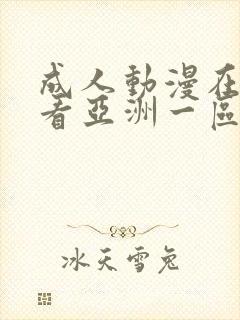 成人動漫在
看亞洲一區
冰天雪兔